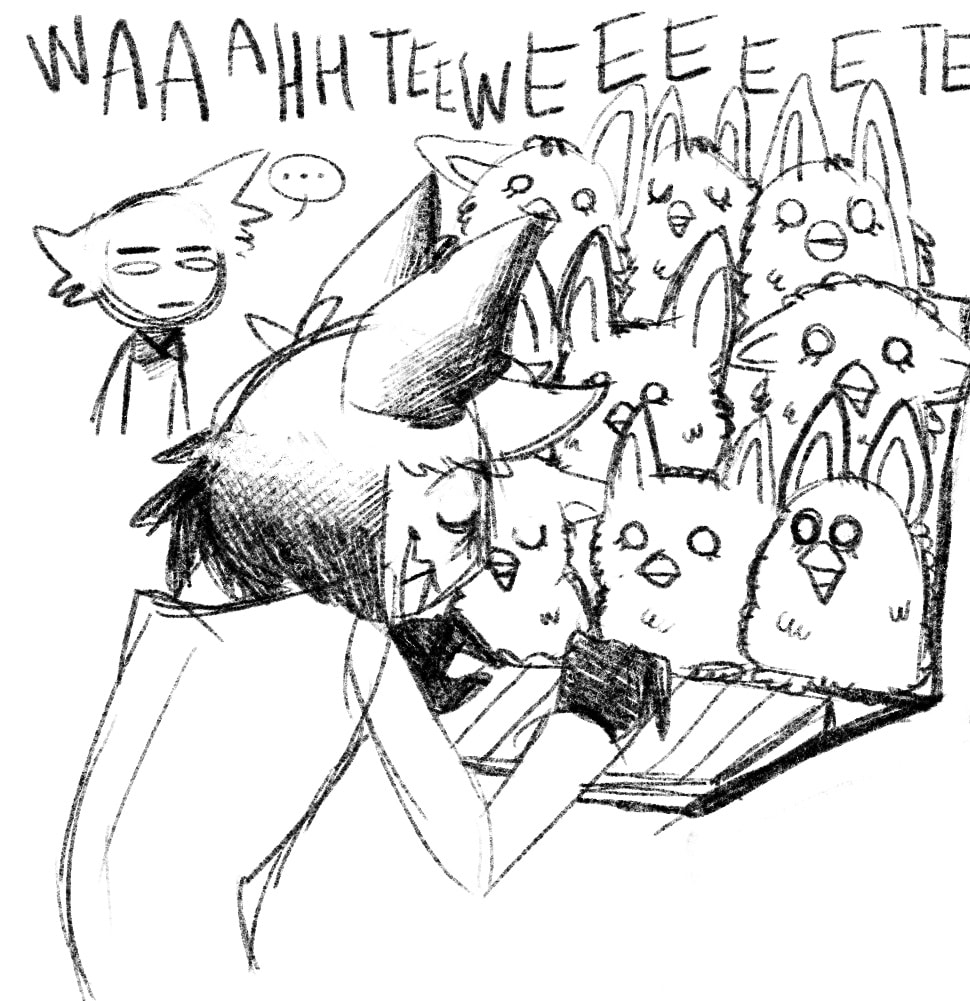 WAAAHH TEEWEEEEETE
...